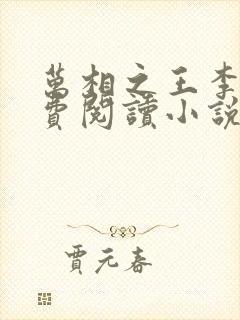 萬相之王李
費閱讀小說
賈元春